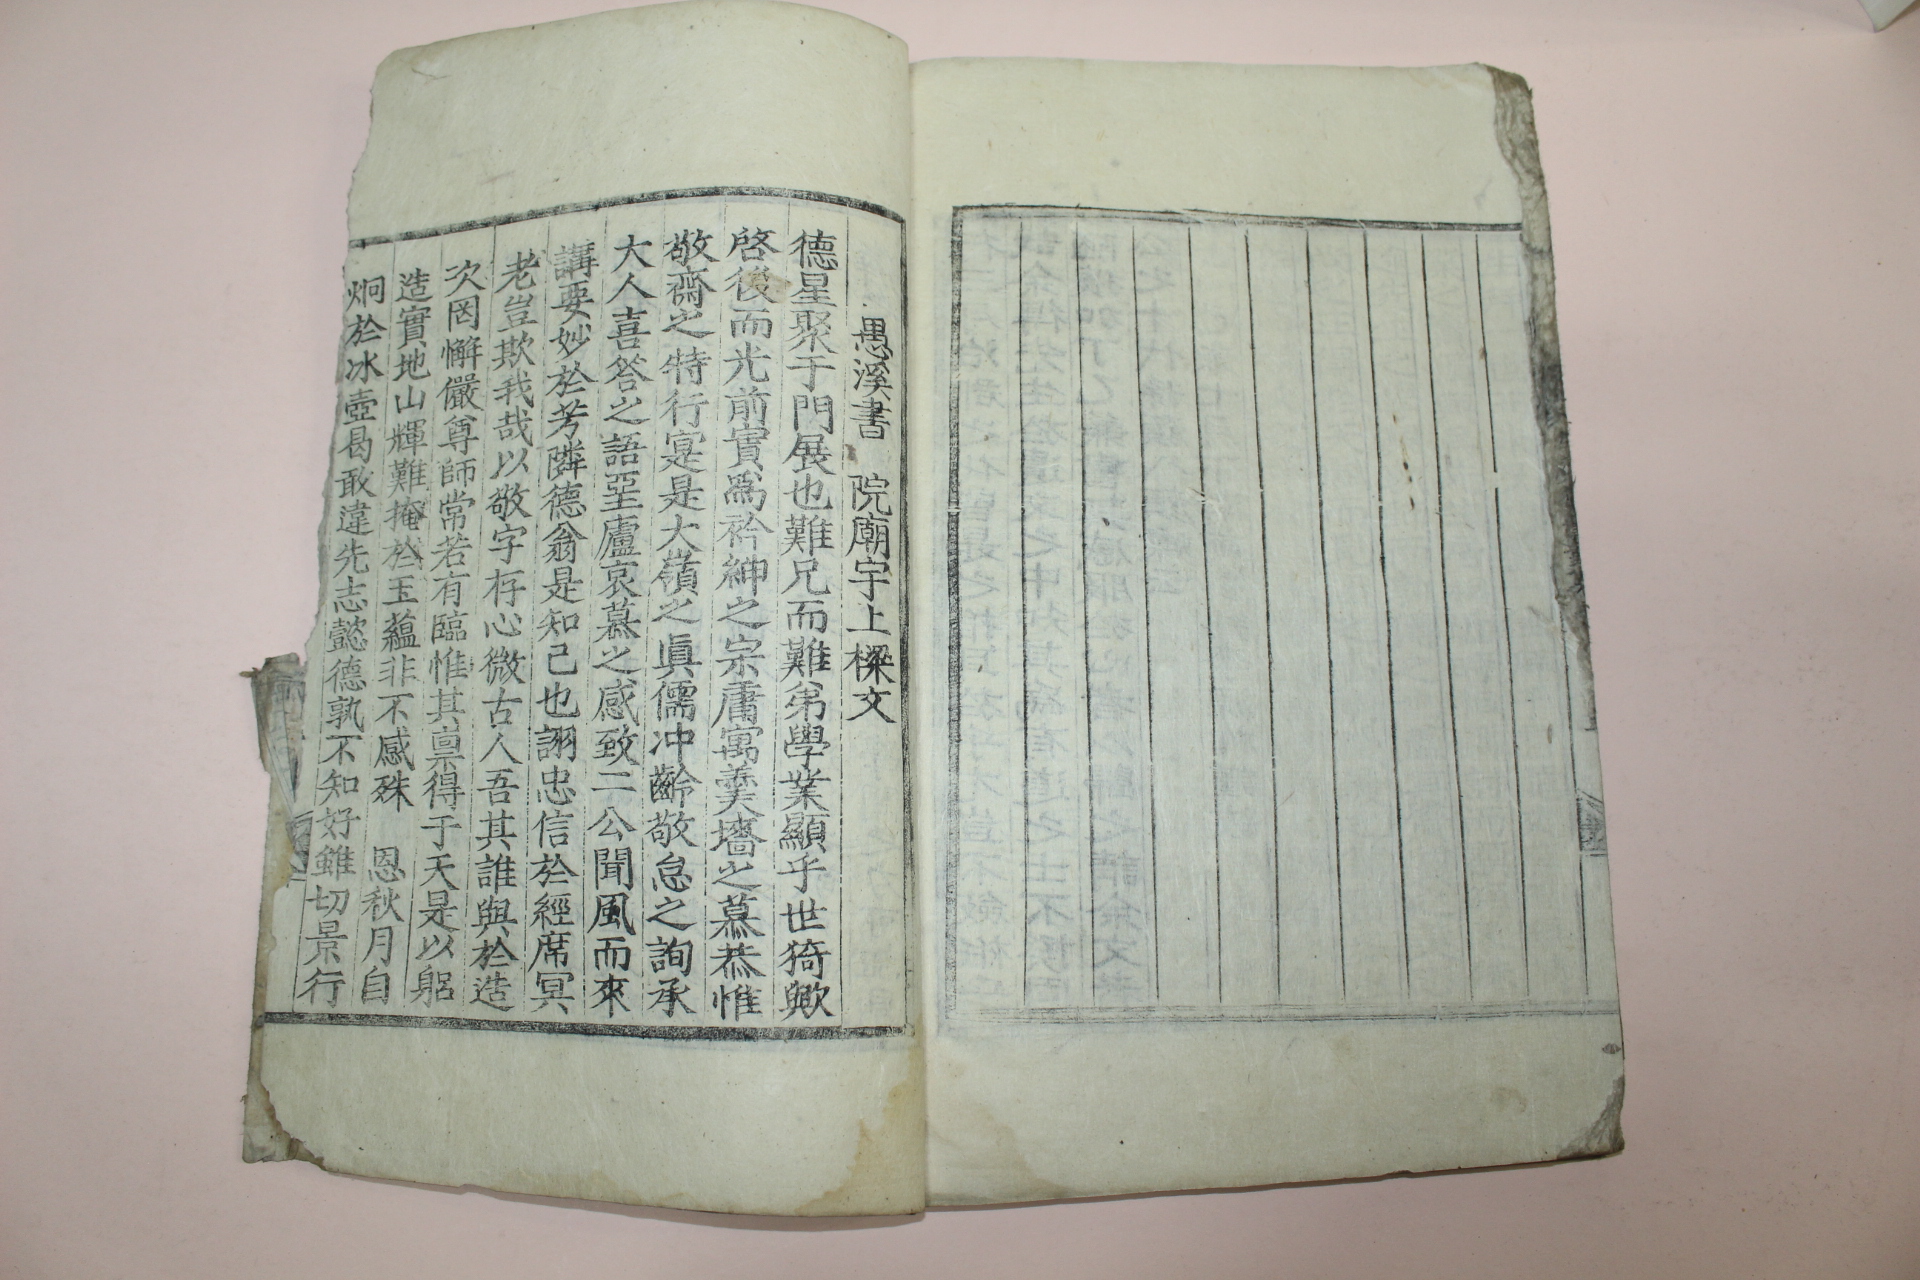 愚溪書 院廟宇上樑文
德星聚于門展也難兄而難弟學業顯乎世猗歟
啓後而光前實爲衿紳之宗庸寓羹墻之慕恭惟
敬齋之特行寔是大嶺之眞儒冲齡敬怠之詢承
大人喜答之語堊廬哀慕之感致二公聞風而來
講要妙於芳隣德翁是知己也詡忠信於經席冥
老豈欺我哉以敬字存心微古人吾其誰與於造
次罔懈儼尊師常若有臨惟其禀得于天是以躬
造實地山輝難掩於玉蘊非不感殊 恩秋月自
炯於冰壺曷敢違先志懿德孰不知好雖切景行